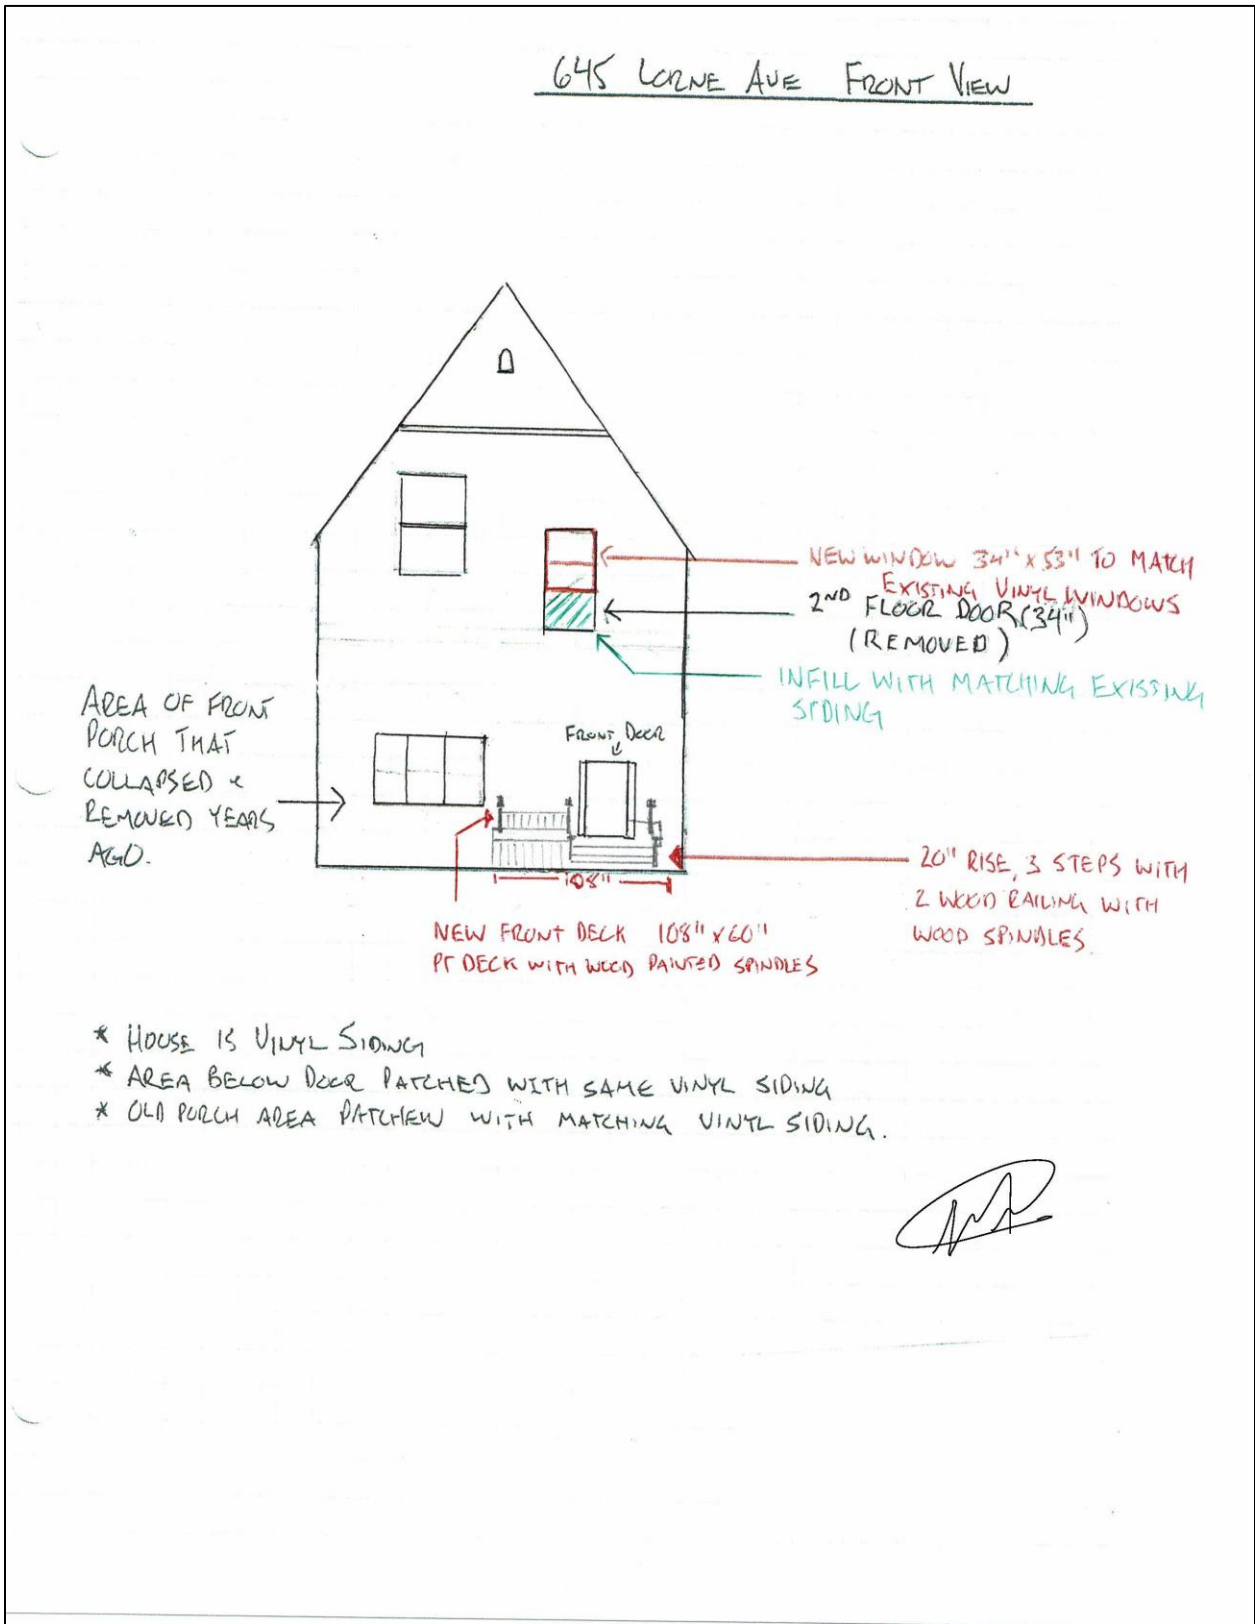 645 LORNE AVE FRONT VIEW
NEW WINDOW 34" x 53" TO MATCH
EXISTING VINYL WINDOWS
2ND FLOOR DOOR (34")
(REMOVED)
INFILL WITH MATCHING EXISSING
SIDING
AREA OF FRONT
PORCH THAT
COLLAPSED &
REMOVED YEARS
AGO.
FRONT DOOR
108"
20" RISE, 3 STEPS WITH
2 WOOD RAILING WITH
WOOD SPINDLES.
NEW FRONT DECK 108" x 60"
PT DECK WITH WOOD PAINTED SPINDLES
* HOUSE IS VINYL SIDING
* AREA BELOW DOOR PATCHED WITH SAME VINYL SIDING
* OLD PORCH AREA PATCHEW WITH MATCHING VINYL SIDING.